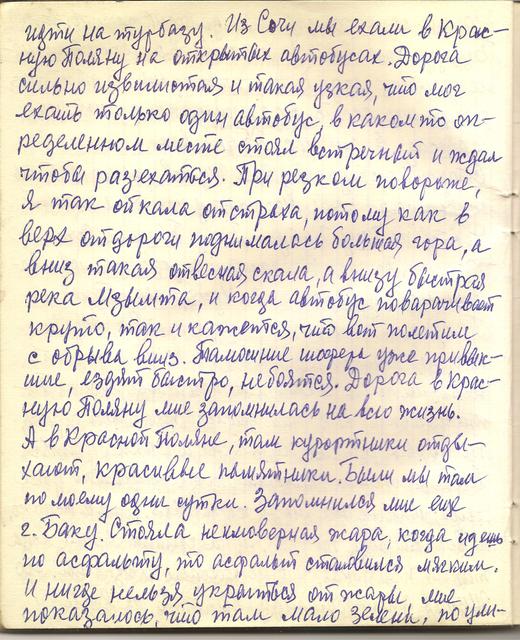 идти на турбазу. Из Сочи мы ехали в Крас-
ную Поляну на открытых автобусах. Дорога
сильно извилистая и такая узкая, что мог
ехать только один автобус, в каком то оп-
ределенном месте стоял встречный и ждал
чтобы раз'ехаться. При резком повороте,
я так охкала от страха, потому как в
верх от дороги поднималась большая гора, а
вниз такая отвесная скала, а внизу быстрая
река Мзымта, и когда автобус поварачивает
круто, так и кажется, что вот полетим
с обрыва вниз. Тамошние шофера уже привык-
шие, ездят быстро, не боятся. Дорога в Крас-
ную Поляну мне запомнилась на всю жизнь.
А в Красной Поляне, там курортники отды-
хают, красивые памятники. Были мы там
по моему одни сутки. Запомнился мне еще
г. Баку. Стояла неимоверная жара, когда идешь
по асфальту, то асфальт становился мягким.
И нигде нельзя укрыться от жары мне
показалось, что там мало зелени, по ули-